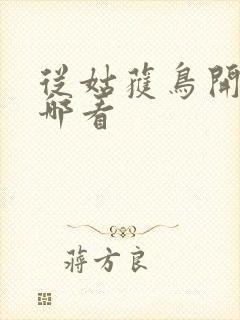 從姑獲鳥開
哪看
蔣方良